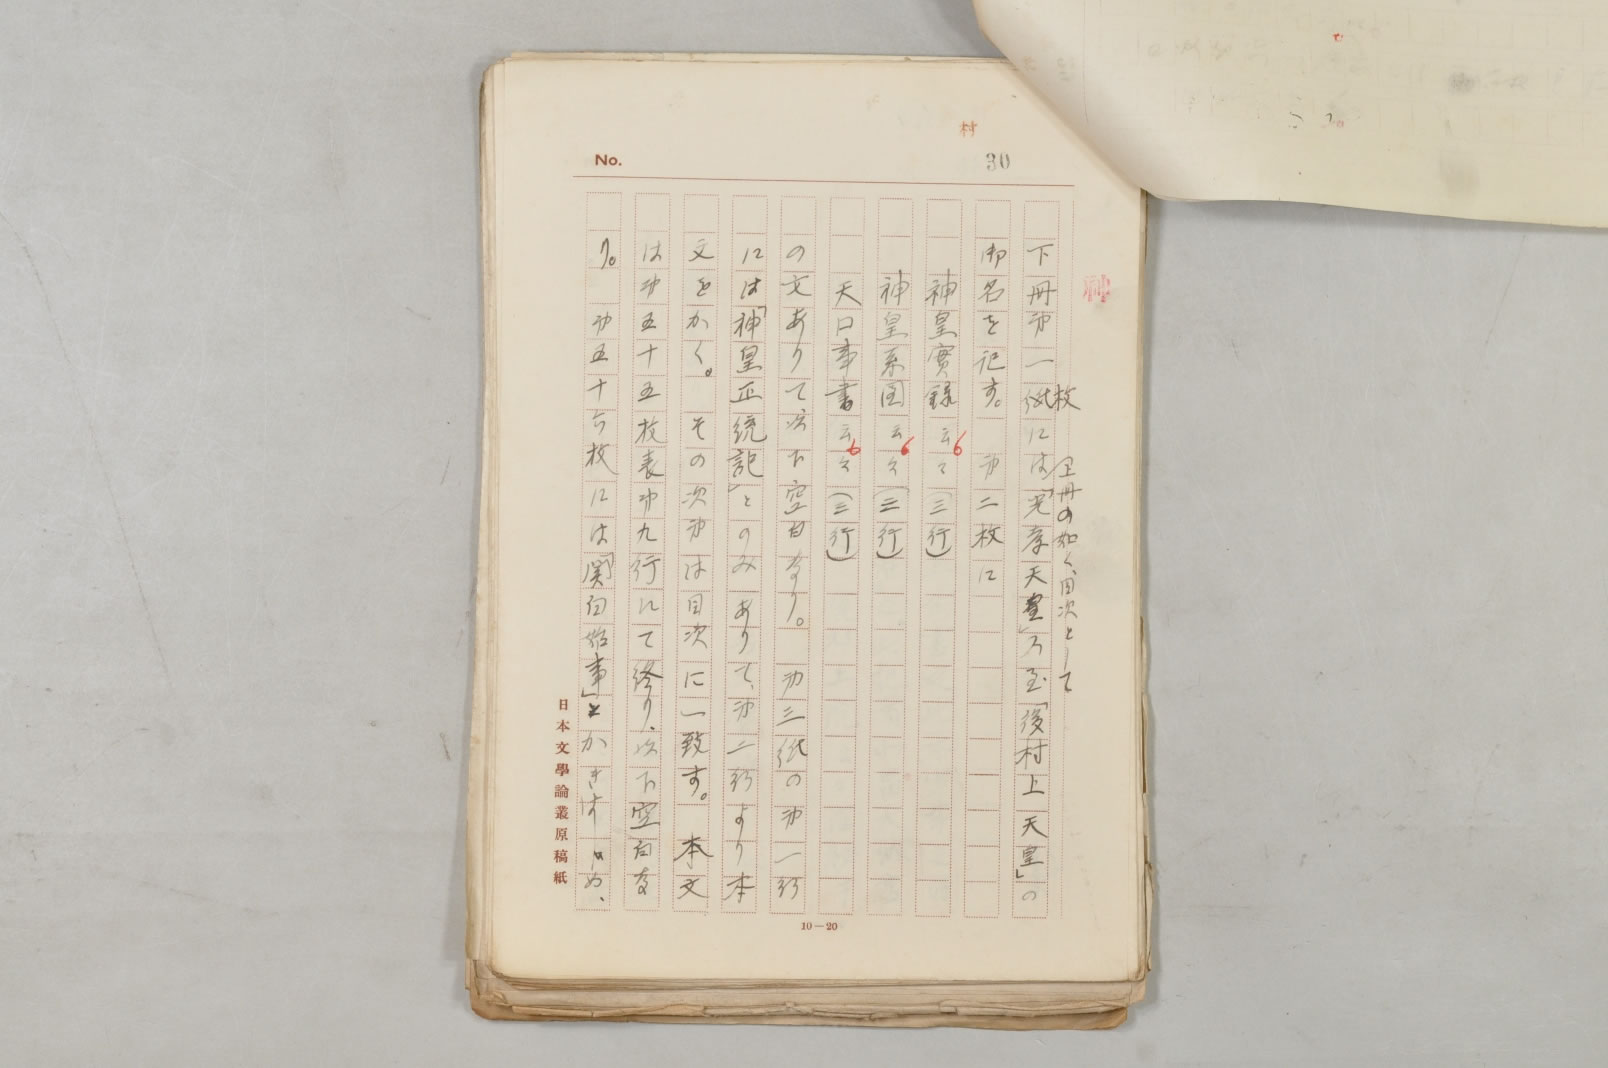 村
No. 30
上冊の如く、目次として
下冊才一紙枚には「光孝天皇」乃至「後村上天皇」の
御名を記す。 才二枚に
神皇實録云々(三行)
神皇系図云々(三行)
天口事書云々(三行)
の文ありて以下空白なり。 才三紙の才一行
には「神皇正統記」とのみありて、才二行より本
文をかく。 その次才は目次に一致す。 本文
は才五十五枚表才九行にて終り、以下空白な
り。 才五十六枚には「関白 事」とかきはじめ、
日本文學論叢原稿紙
10―20